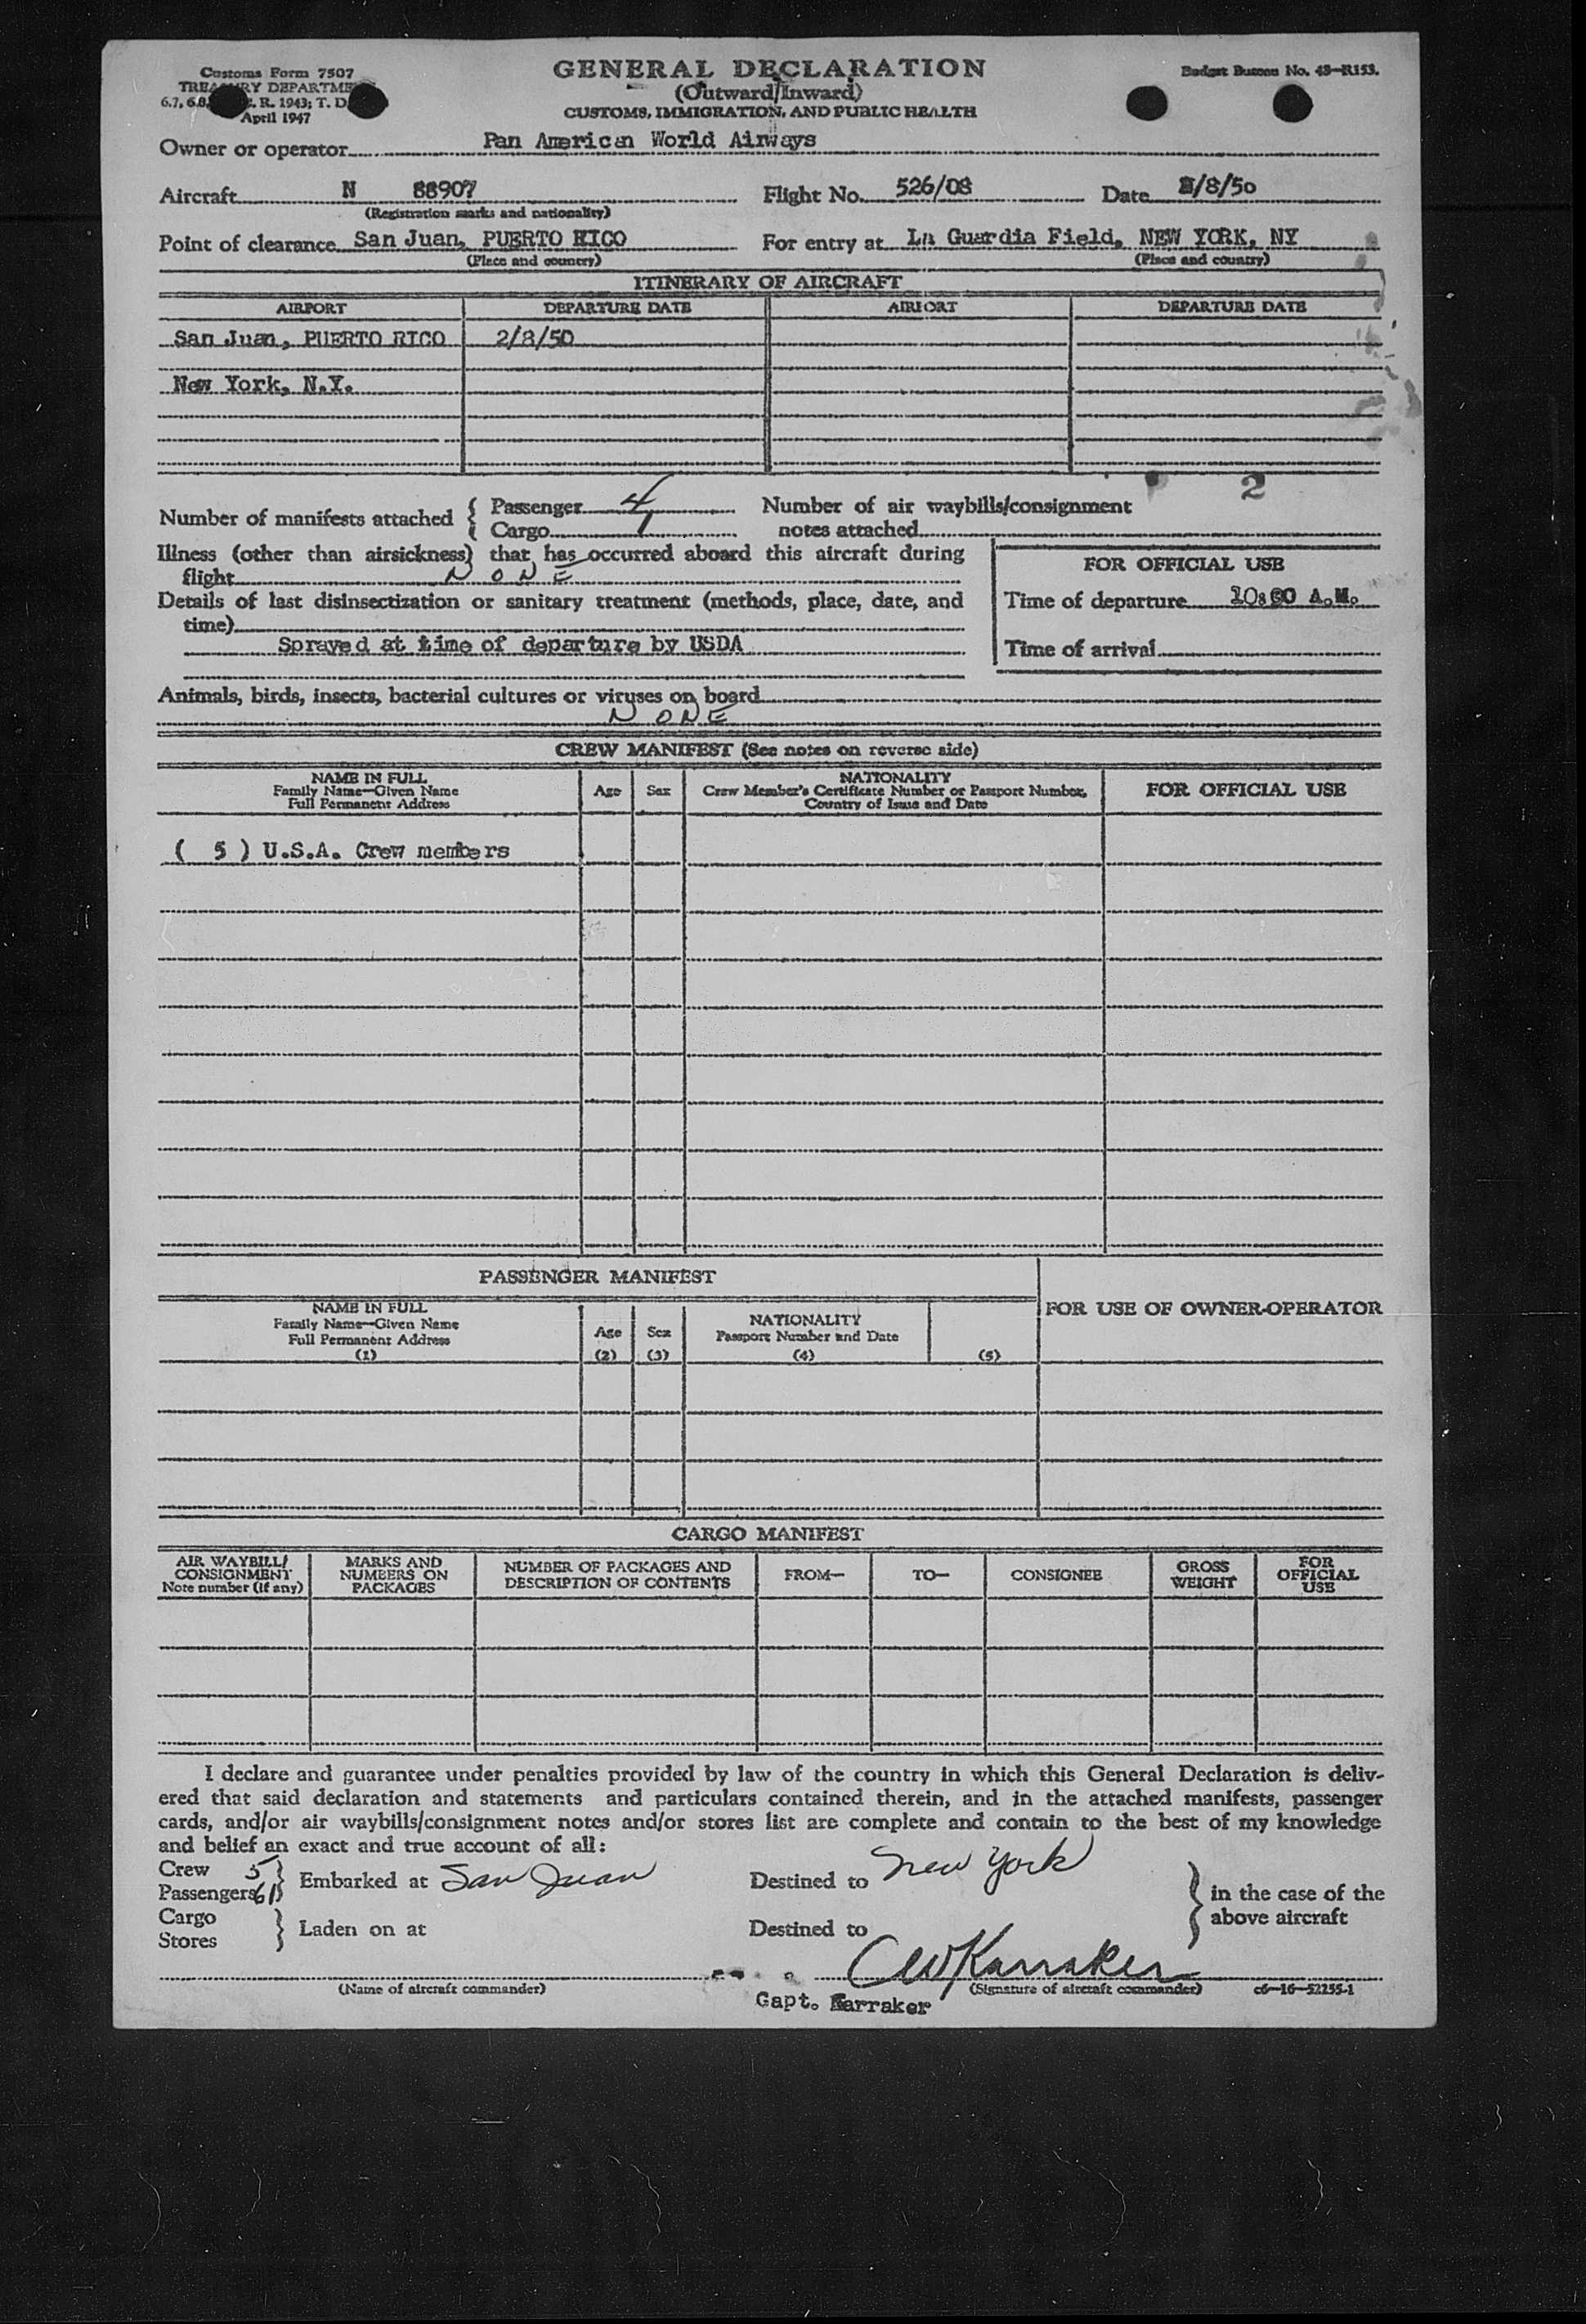 Customs Form 7507
TREASURY DEPARTMENT
6.7, 6.8, C. R. 1943; T. D.
April 1947
GENERAL DECLARATION
(Outward/Inward)
CUSTOMS, IMMIGRATION, AND PUBLIC HEALTH
Budget Bureau No. 43—R153.
Owner or operator Pan American World Airways
Aircraft N 88907 Flight No. 526/08 Date 2/8/50
(Registration marks and nationality)
Point of clearance San Juan, PUERTO RICO For entry at La Guardia Field, NEW YORK, NY
(Place and country) (Place and country)
ITINERARY OF AIRCRAFT
AIRPORT DEPARTURE DATE AIRPORT DEPARTURE DATE
San Juan, PUERTO RICO 2/8/50
New York, N.Y.
2
Number of manifests attached { Passenger 4 Number of air waybills/consignment
Cargo 1 notes attached
Illness (other than airsickness) that has occurred aboard this aircraft during
flight NONE
FOR OFFICIAL USE
Details of last disinsectization or sanitary treatment (methods, place, date, and
time)
Time of departure 10:00 A.M.
Sprayed at time of departure by USDA
Time of arrival
Animals, birds, insects, bacterial cultures or viruses on board
NONE
CREW MANIFEST (See notes on reverse side)
NAME IN FULL
Family Name—Given Name
Full Permanent Address
Age Sex
NATIONALITY
Crew Member's Certificate Number or Passport Number,
Country of Issue and Date
FOR OFFICIAL USE
( 5 ) U.S.A. Crew members
PASSENGER MANIFEST
FOR USE OF OWNER-OPERATOR
NAME IN FULL
Family Name—Given Name
Full Permanent Address
(1)
Age
(2)
Sex
(3)
NATIONALITY
Passport Number and Date
(4)
(5)
CARGO MANIFEST
AIR WAYBILL/
CONSIGNMENT
Note number (if any)
MARKS AND
NUMBERS ON
PACKAGES
NUMBER OF PACKAGES AND
DESCRIPTION OF CONTENTS
FROM—
TO—
CONSIGNEE
GROSS
WEIGHT
FOR
OFFICIAL
USE
I declare and guarantee under penalties provided by law of the country in which this General Declaration is deliv-
ered that said declaration and statements and particulars contained therein, and in the attached manifests, passenger
cards, and/or air waybills/consignment notes and/or stores list are complete and contain to the best of my knowledge
and belief an exact and true account of all:
Crew 5
Passengers 61 } Embarked at San Juan Destined to New York
in the case of the
above aircraft
Cargo
Stores } Laden on at Destined to
CW Karraker
(Name of aircraft commander) (Signature of aircraft commander) c6—16—52255-1
Capt. Karraker